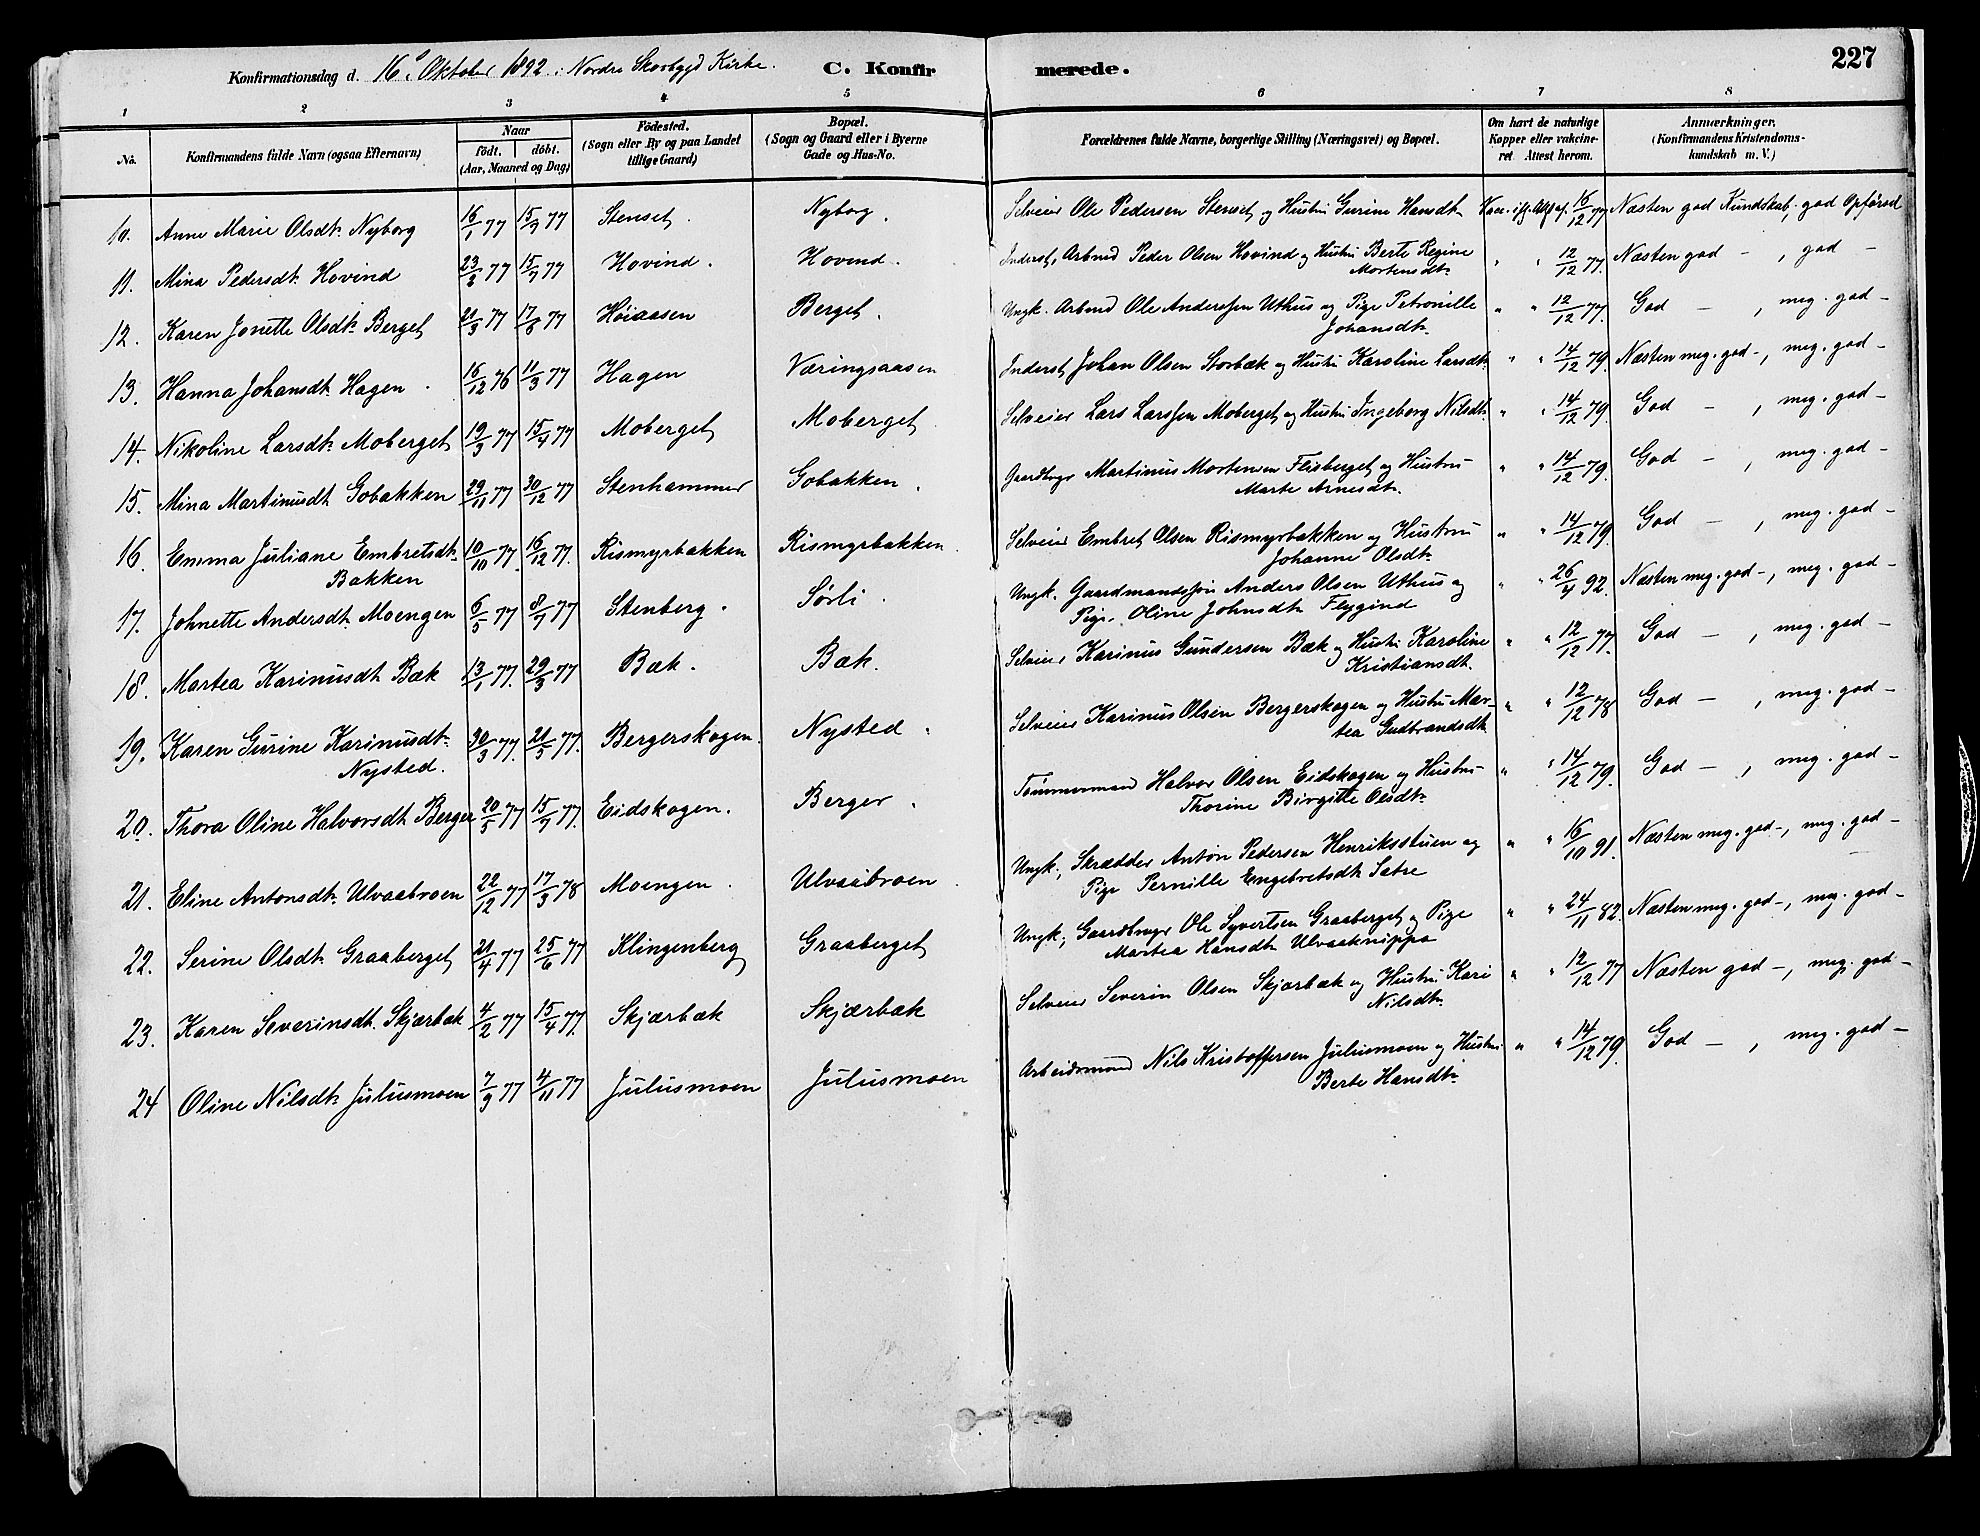 Konfirmationsdag d. 16de Oktober 1892 i Nordre Skovbygd Kirke. C. Konfirmerede. 227
1 2 3 4 5 6 7 8
No. Konfirmandens fulde Navn (ogsaa Efternavn) Naar födt. döbt. (Aar, Maaned og Dag) Födested. (Sogn eller By og paa Landet tillige Gaard) Bopæl. (Sogn og Gaard eller i Byerne Gade og Hus-No. Forældrenes fulde Navne, borgerlige Stilling (Næringsvei) og Bopæl. Om havt de naturlige Kopper eller vakcineret Attest herom. Anmærkninger. (Konfirmandens Kristendomskundskab m. V.)
10. Anne Marie Olsdtr. Nyborg 16/1 77 15/7 77 Stenset. Nyborg. Selveier Ole Pedersen Stenset og Hustru Gurine Hansdtr. Vacc. iflg. Att. af 16/12 77 Næsten god Kundskab, god Opförsel
11. Mina Pedersdtr. Hovind 23/2 77 15/7 77 Hovind. Hovind. Inderst, Arbmd Peder Olsen Hovind og Hustru Berte Regine
Mortensdtr. " " 12/12 77. Næsten god –, god –
12. Karen Jonette Olsdtr. Berget 21/3 77 17/6 77 Höiaasen Berget. Ungk. Arbmd Ole Anderssen Uthus og Pige Petronille
Johansdtr. " " 12/12 77. God –, meg. god –
13. Hanna Johansdtr. Hagen. 16/12 76 11/3 77 Hagen Væringsaasen Inderst, Johan Olsen Storbæk og Hustru Karoline Larsdtr. " " 14/12 79. Næsten meg. god –, meg. god –
14. Nikoline Larsdtr. Moberget 19/3 77 15/4 77 Moberget Moberget Selveier Lars Larssen Moberget og Hustru Ingeborg Nilsdtr. " " 14/12 79. God –, meg. god –
15. Mina Martinusdtr Gobakken 29/11 77 30/12 77 Stenhammer Gobakken. Gaardbrugr Martinus Mortensen Flisberget og Hustru
Marte Arnesdtr. " " 14/12 79. God –, meg. god –
16. Emma Juliane Embretsdtr.
Bakken 10/10 77. 16/12 77. Rismyrbakken Rismyrbakken. Selveier Embret Olsen Rismyrbakken og Hustru
Johanne Olsdtr. " " 14/12 79. God –, meg. god –
17. Johnette Andersdtr. Moengen 6/5 77 8/7 77 Stenberg. Sörli. Ungk. Gaardmandssön Anders Olsen Uthus og
Pige. Oline Johnsdtr Flygind " " 26/4 92. Næsten meg. god –, meg. god –
18. Martea Karinusdtr. Bæk 13/1 77. 29/3 77 Bæk. Bæk. Selveier Karinus Gundersen Bæk og Hustru Karoline
Kristiansdtr. " " 12/12 77. God –, meg. god –
19. Karen Gurine Karinusdtr.
Nysted. 30/3 77. 21/5 77. Bergerskogen. Nysted. Selveier Karinus Olsen Bergerskogen og Hustru Mar-
tea Gudbrandsdtr. " " 12/12 78 God –, meg. god –
20. Thora Oline Halvorsdtr Berger 20/5 77 15/7 77. Eidskogen. Berger. Tömmermand Halvor Olsen Eidskogen og Hustru
Thorine Birgitte Olsdtr. " " 14/12 79. God –, meg. god –
21. Eline Antonsdtr. Ulvaabroen 22/12 77 17/3 78 Moengen. Ulvaabroen. Ungk., Skrædder Anton Pedersen Henriksstuen og
Pige Pernille Engebretsdtr Sætre " " 16/10 91. Næsten meg. god –, meg. god –
22. Serine Olsdtr. Graaberget 21/4 77 25/6 77 Klingenberg Graaberget Ungk., Gaardbrugr Ole Syvertsen Graaberget og Pige
Martea Hansdtr Ulvaaknippa " " 24/11 82. Næsten meg. god –, meg. god –
23. Karen Severinsdtr. Skjærbæk 4/2 77 15/4 77. Skjærbæk Skjærbæk Selveier Severin Olsen Skjærbæk og Hustru Kari
Nilsdtr. " " 12/12 77 Næsten god –, meg. god –
24 Oline Nilsdtr. Juliusmoen 7/9 77 4/11 77 Juliusmoen Juliusmoen Arbeidsmand Nils Kristoffersen Juliusmoen og Hustru
Berte Hansdtr. " " 14/12 79. God –, meg. god –